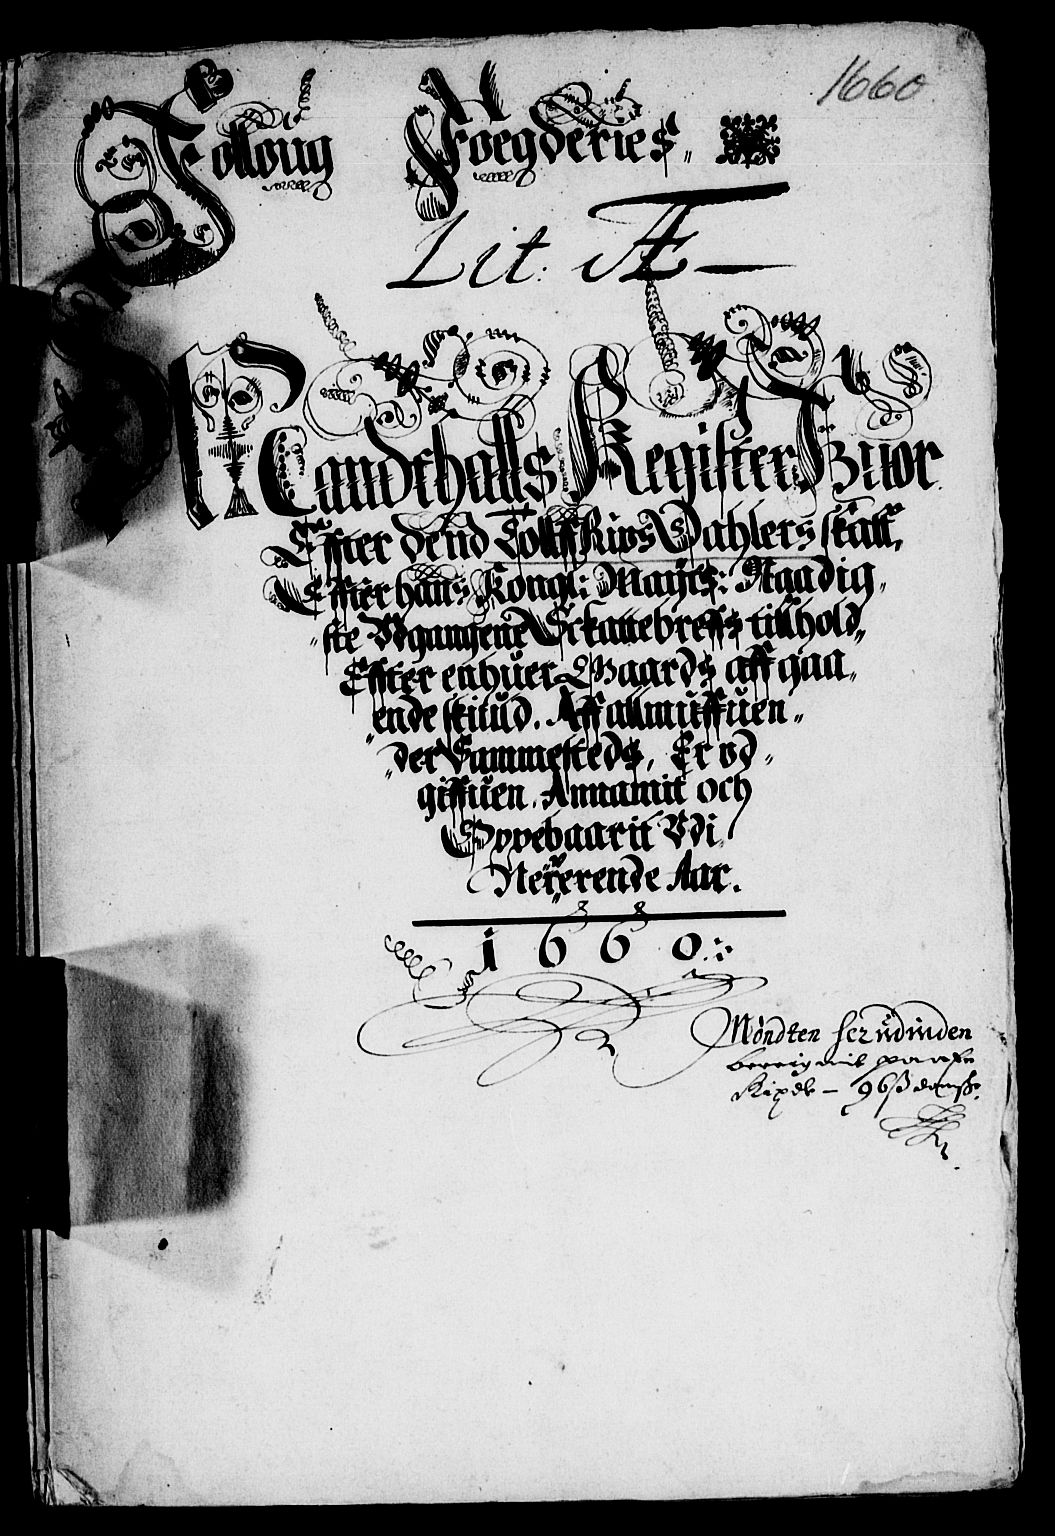 1660
Folloug Foegderies.
Lit: Æ
Mandthalls Register Huor
Effter dend Tolff Rixs Dahlers skatt,
Effter hans Kongl: Mayts: Naadig„
„ste Vdgangene Skattebreffs tillhold„
Effter enhuer Gaards affgaa„
„ende skiuld. Aff allmuffuen„
„der Sammesteds, Er vd„
giffuen. Annamit och
Oppebaarit Vdi
Nerverende Aar.
1660:
Mondten herudinden
beregnit
Rixdr – 96 ß danske.